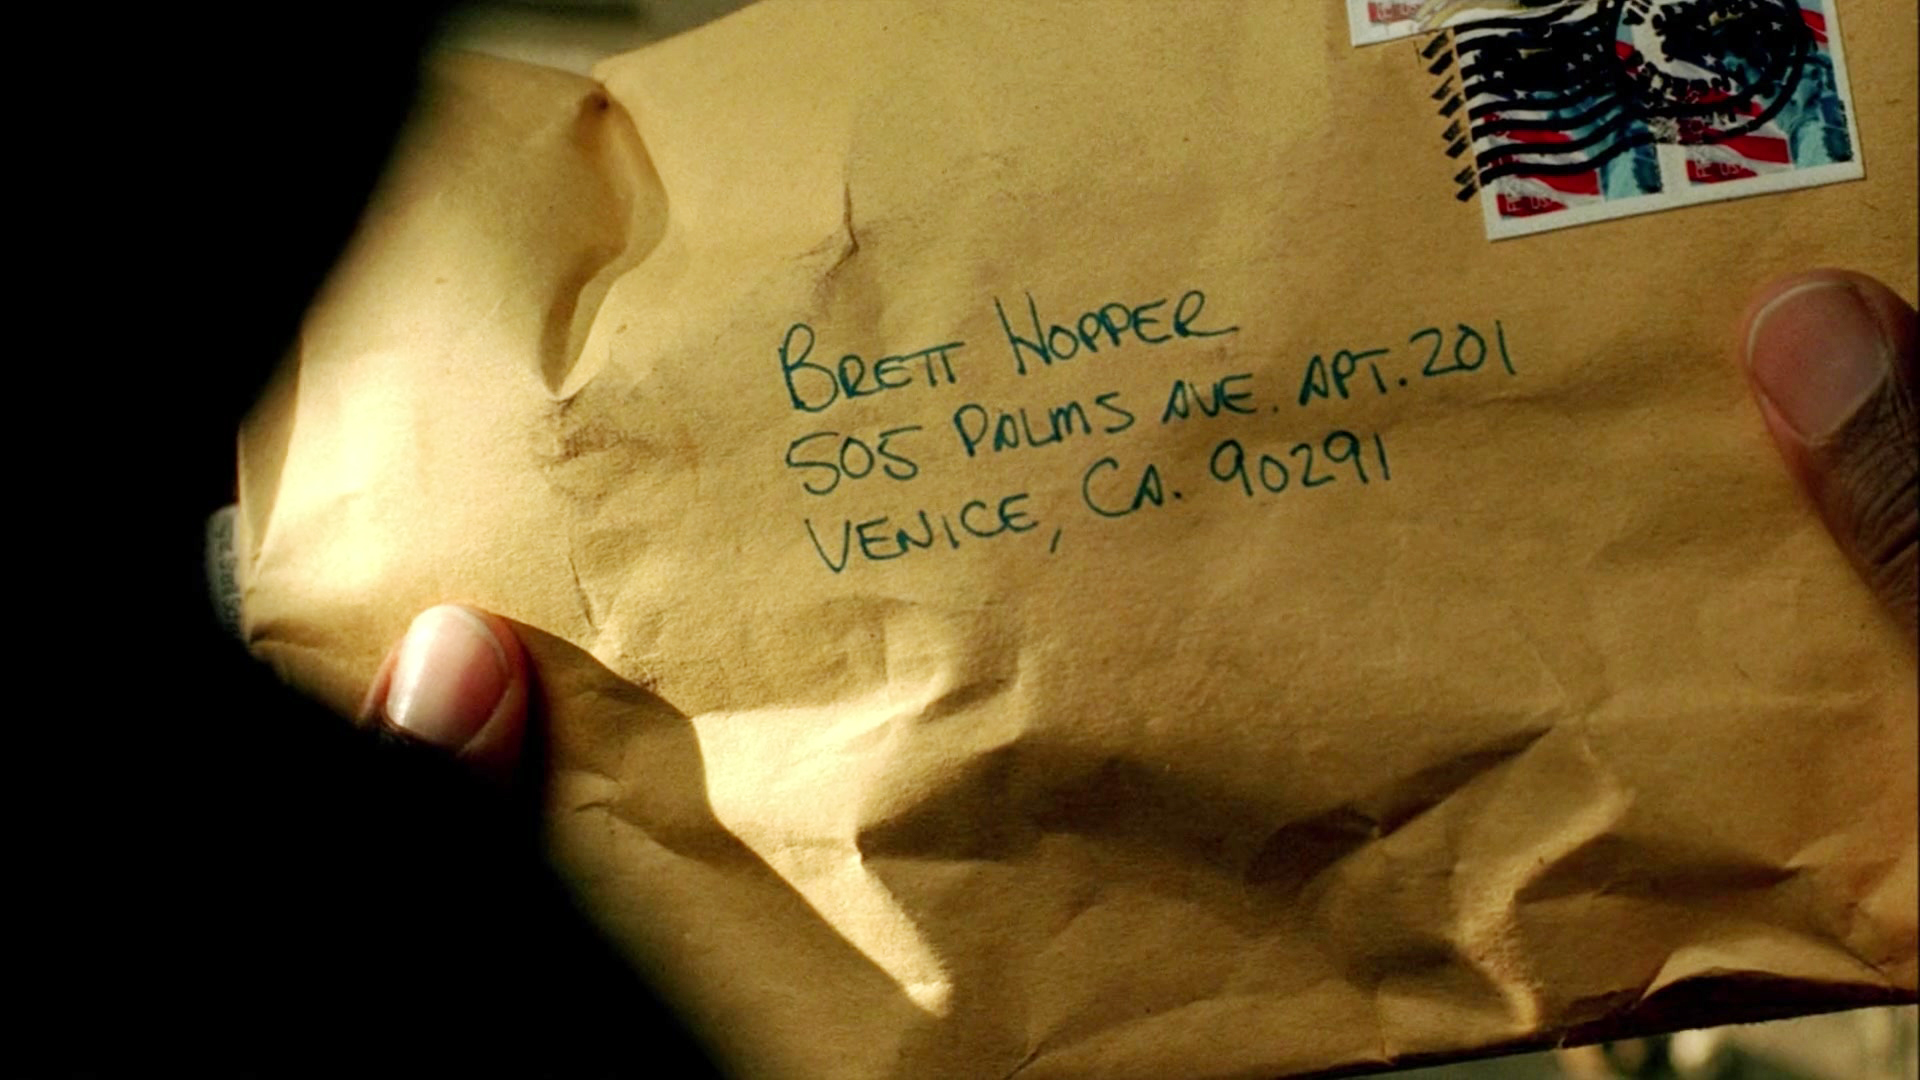 BRETT HOPPER
505 PALMS AVE. APT. 201
VENICE, CA. 90291